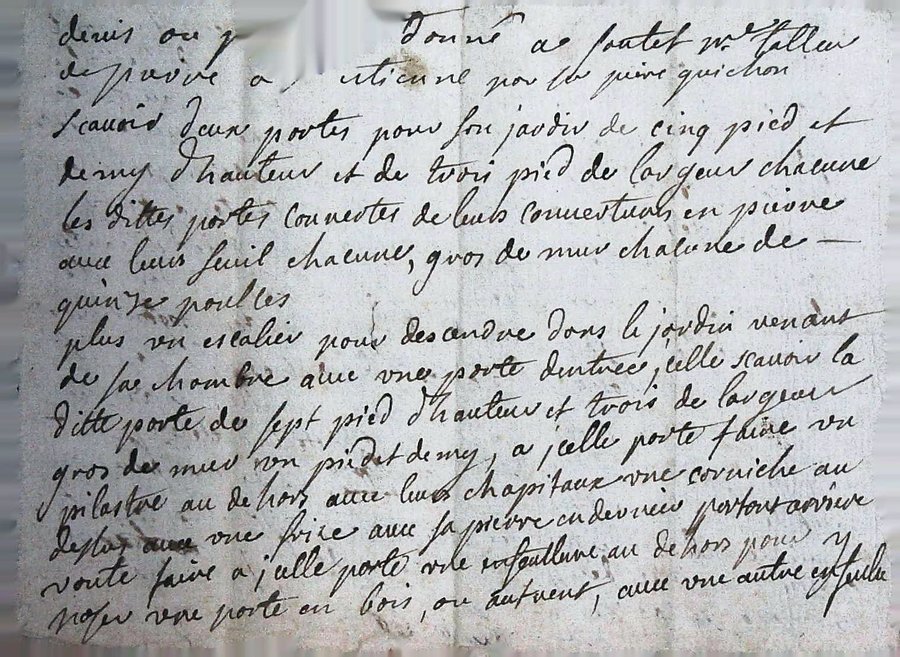 devis ou p donné a soutet m.e tailleur
de pierre a utienne par sr pierre guichon
scavoir deux portes pour son jardin de cinq pied et
demy d'hauteur et de trois pied de largeur chacune
les dittes portes couvertes de leurs couvertures en pierre
avec leurs seuil chacune, gros de mur chacune de —
quinze poulces
plus un escalier pour descendre dans le jardin venant
de sa chambre avec une porte dentree, jcelle scavoir la
ditte porte de sept pied d'hauteur et trois de largeur
gros de mur un pied et demy, a jcelle porte faire un
pilastre au dehors avec leurs chapitaux une corniche au
dessus avec une frise avec sa pierre en dernier portant arriere
voute faire a jcelle porte une enfeullure au dehors pour y
poser une porte en bois, ou auvent, avec une autre enfeullu